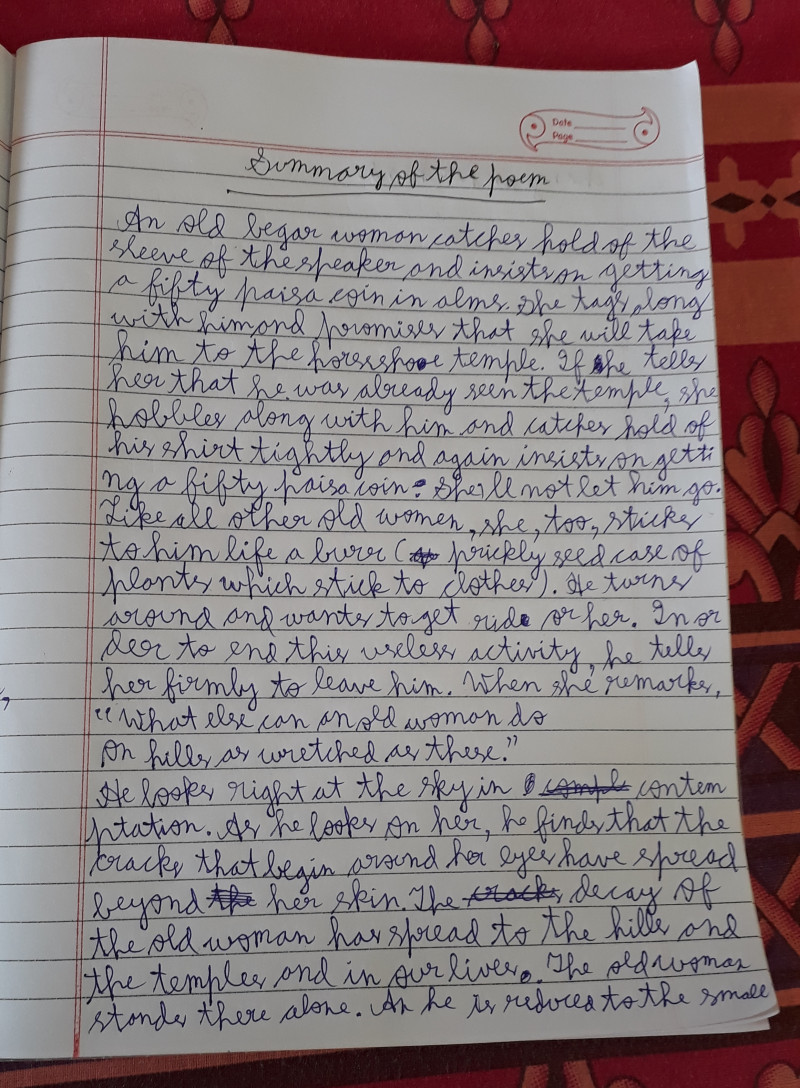 Date
Page
Summary of the poem
An old begar woman catches hold of the
sleeve of the speaker and insists on getting
a fifty paisa coin in alms. She tags along
with him and promises that she will take
him to the horseshoe temple. If she tells
her that he was already seen the temple, she
hobbles along with him and catches hold of
his shirt tightly and again insists on getti
ng a fifty paisa coin. She'll not let him go.
Like all other old women, she, too, sticks
to him life a burr ( prickly seed case of
plants which stick to clothes). He turns
around and wants to get ride or her. In or
der to end this useless activity, he tells
her firmly to leave him. When she remarks,
"What else can an old woman do
on hills as wretched as these."
He looks right at the sky in contem
ptation. As he looks on her, he finds that the
cracks that begin around her eyes have spread
beyond her skin. The decay of
the old woman has spread to the hills and
the temples and in our lives. The old woman
stands there alone. An he is reduces to the small